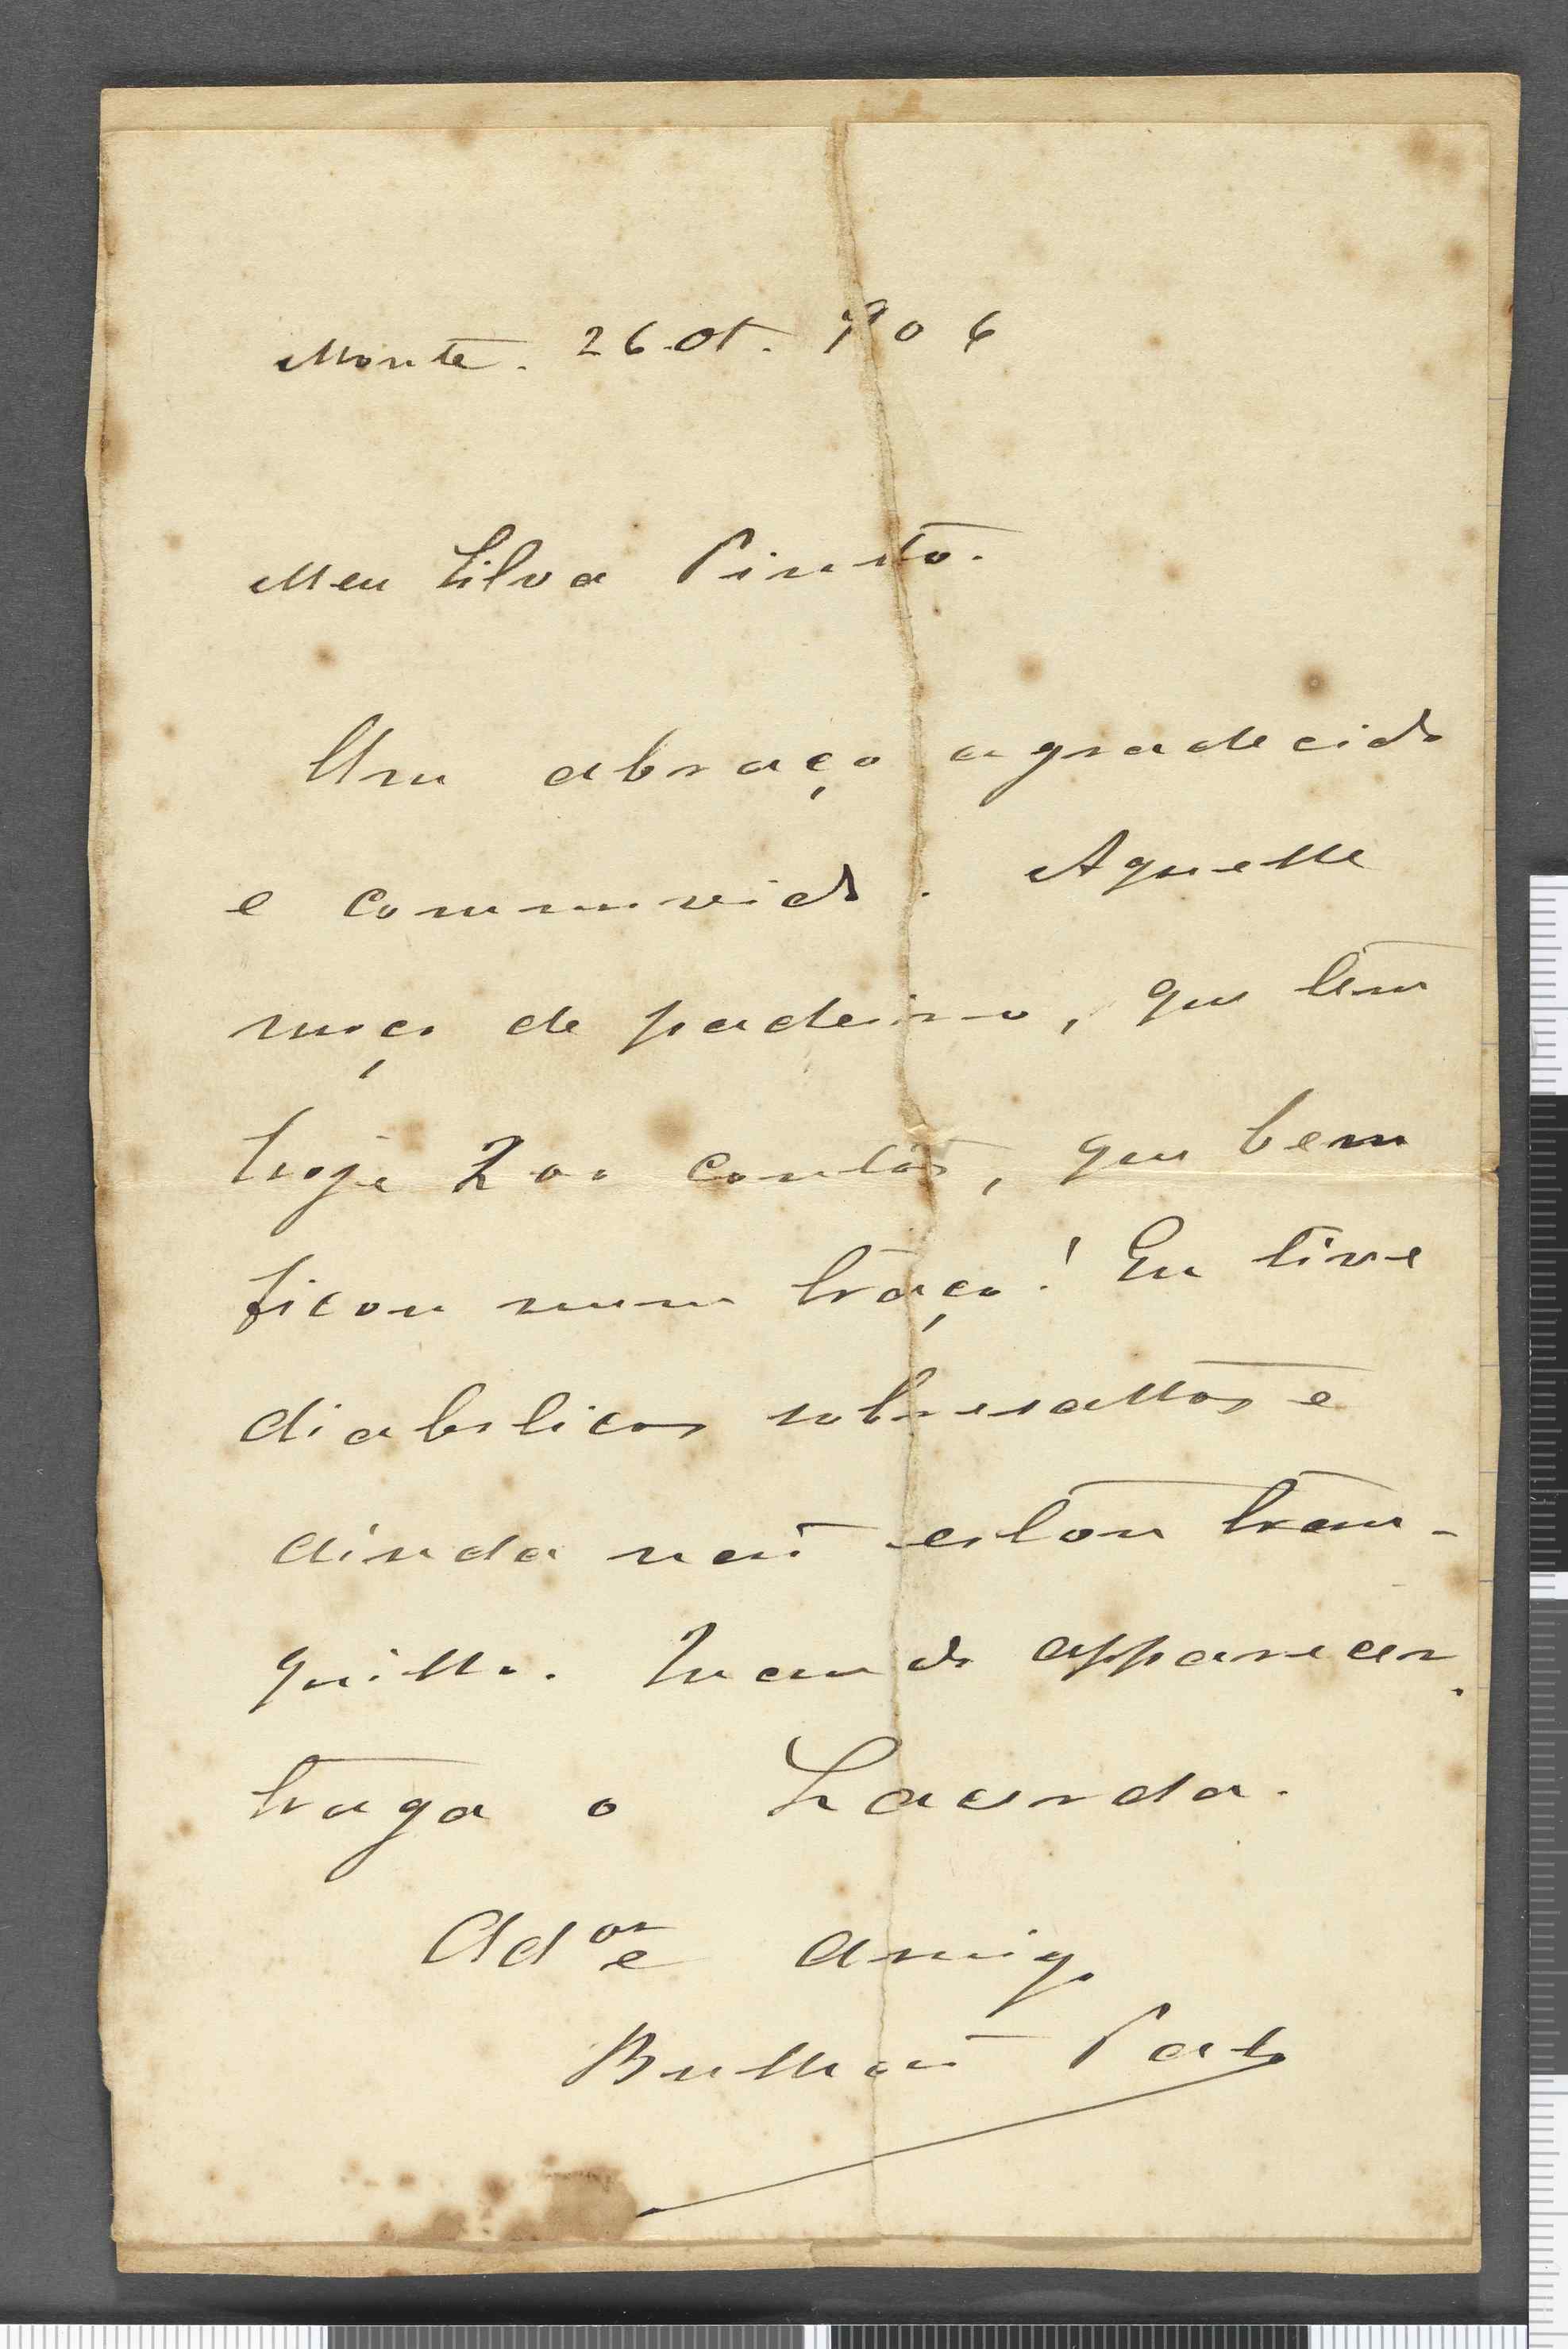 Monte. 26. Ot. 906
Meu Silva Pinto.
Um abraço agradecido
e commovido. Aquelle
moço de padeiro, que tem
hoje 200 contos, que bem
ficou num traço! Eu tive
diabolicos sobresaltos e
ainda não estou tran-
quillo. Quando apparecer,
traga o Lacerda.
Ador e amigo
Bulhão Pato